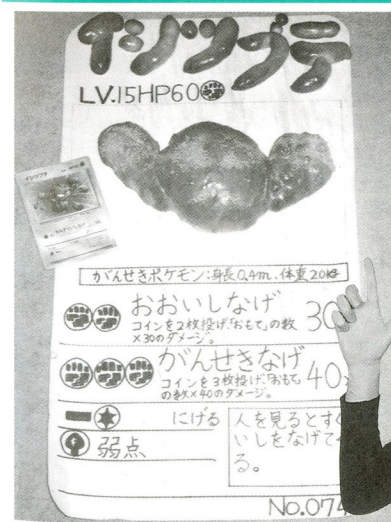 イシツブテ
LV.15HP60
がんせきポケモン:身長0.4m.体重20kg
おおいしなげ 30
コインを2枚投げ「おもて」の数
×30のダメージ。
がんせきなげ 40
コインを3枚投げ「おもて」
の数×40のダメージ。
にげる
弱点
人を見るとすぐ
いしをなげて
る。
No.074
イシツブテ